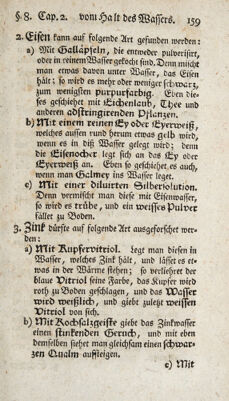 § 8. Cap. 2. vom Halt des Wassers. 159
2. Eisen kann auf folgende Art gefunden werden:
a) Mit Galläpfeln, die entweder pulverisirt,
oder in reinem Wasser gekocht sind. Denn mischt
man etwas davon unter Wasser, das Eisen
hält; so wird es mehr oder weniger schwarz,
zum wenigsten purpurfarbig. Eben die-
ses geschiehet mit Eichenlaub, Thee und
anderen adstringirenden Pflanzen.
b) Mit einem reinen Ey oder Eyerweiß,
welches aussen rund herum etwas gelb wird,
wenn es in diß Wasser gelegt wird; denn
die Eisenocher legt sich an das Ey oder
Eyerweiß an. Eben so geschiehet, es auch,
wenn man Galmey ins Wasser legt.
c) Mit einer diluirten Silbersolution.
Denn vermischt man diese mit Eisenwasser,
so wird es trübe, und ein weisses Pulver
fället zu Boden.
3. Zink dürfte auf folgende Art ausgeforschet wer-
den:
a) Mit Kupfervitriol. Legt man diesen in
Wasser, welches Zink hält, und lässet es et-
was in der Wärme stehen; so verliehret der
blaue Vitriol seine Farbe, das Kupfer wird
roth zu Boden geschlagen, und das Wasser
wird weißlich, und giebt zuletzt weissen
Vitriol von sich.
b) Mit Kochsalzgeiste giebt das Zinkwasser
einen stinkenden Geruch, und mit eben
demselben siehet man gleichsam einen schwar-
zen Qualm aufsteigen.
c) Mit